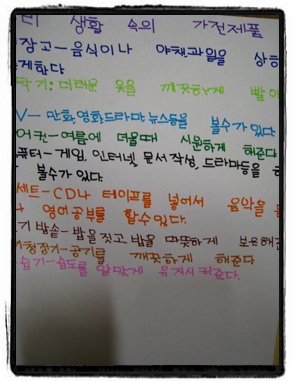 생활 속의 가전제품
장고-음식이나 야채,과일을 상하
게하다
기: 더러운 옷을 깨끗하게 빨아
V-만화,영화드라마,뉴스등을 볼수가 있다
어컨-여름에 더울때 시원하게 해준다
퓨터-게임, 인터넷, 문서 작성, 드라마등을
볼수가 있다.
세트-CD나 테이프를 넣어서 음악을 듣
영어공부를 할수있다.
기 밥솥-밥을 짓고 밥을 따뜻하게 보온해
청정기-공기를 깨끗하게 해준다
습기-습도를 알맞게 유지시켜준다.